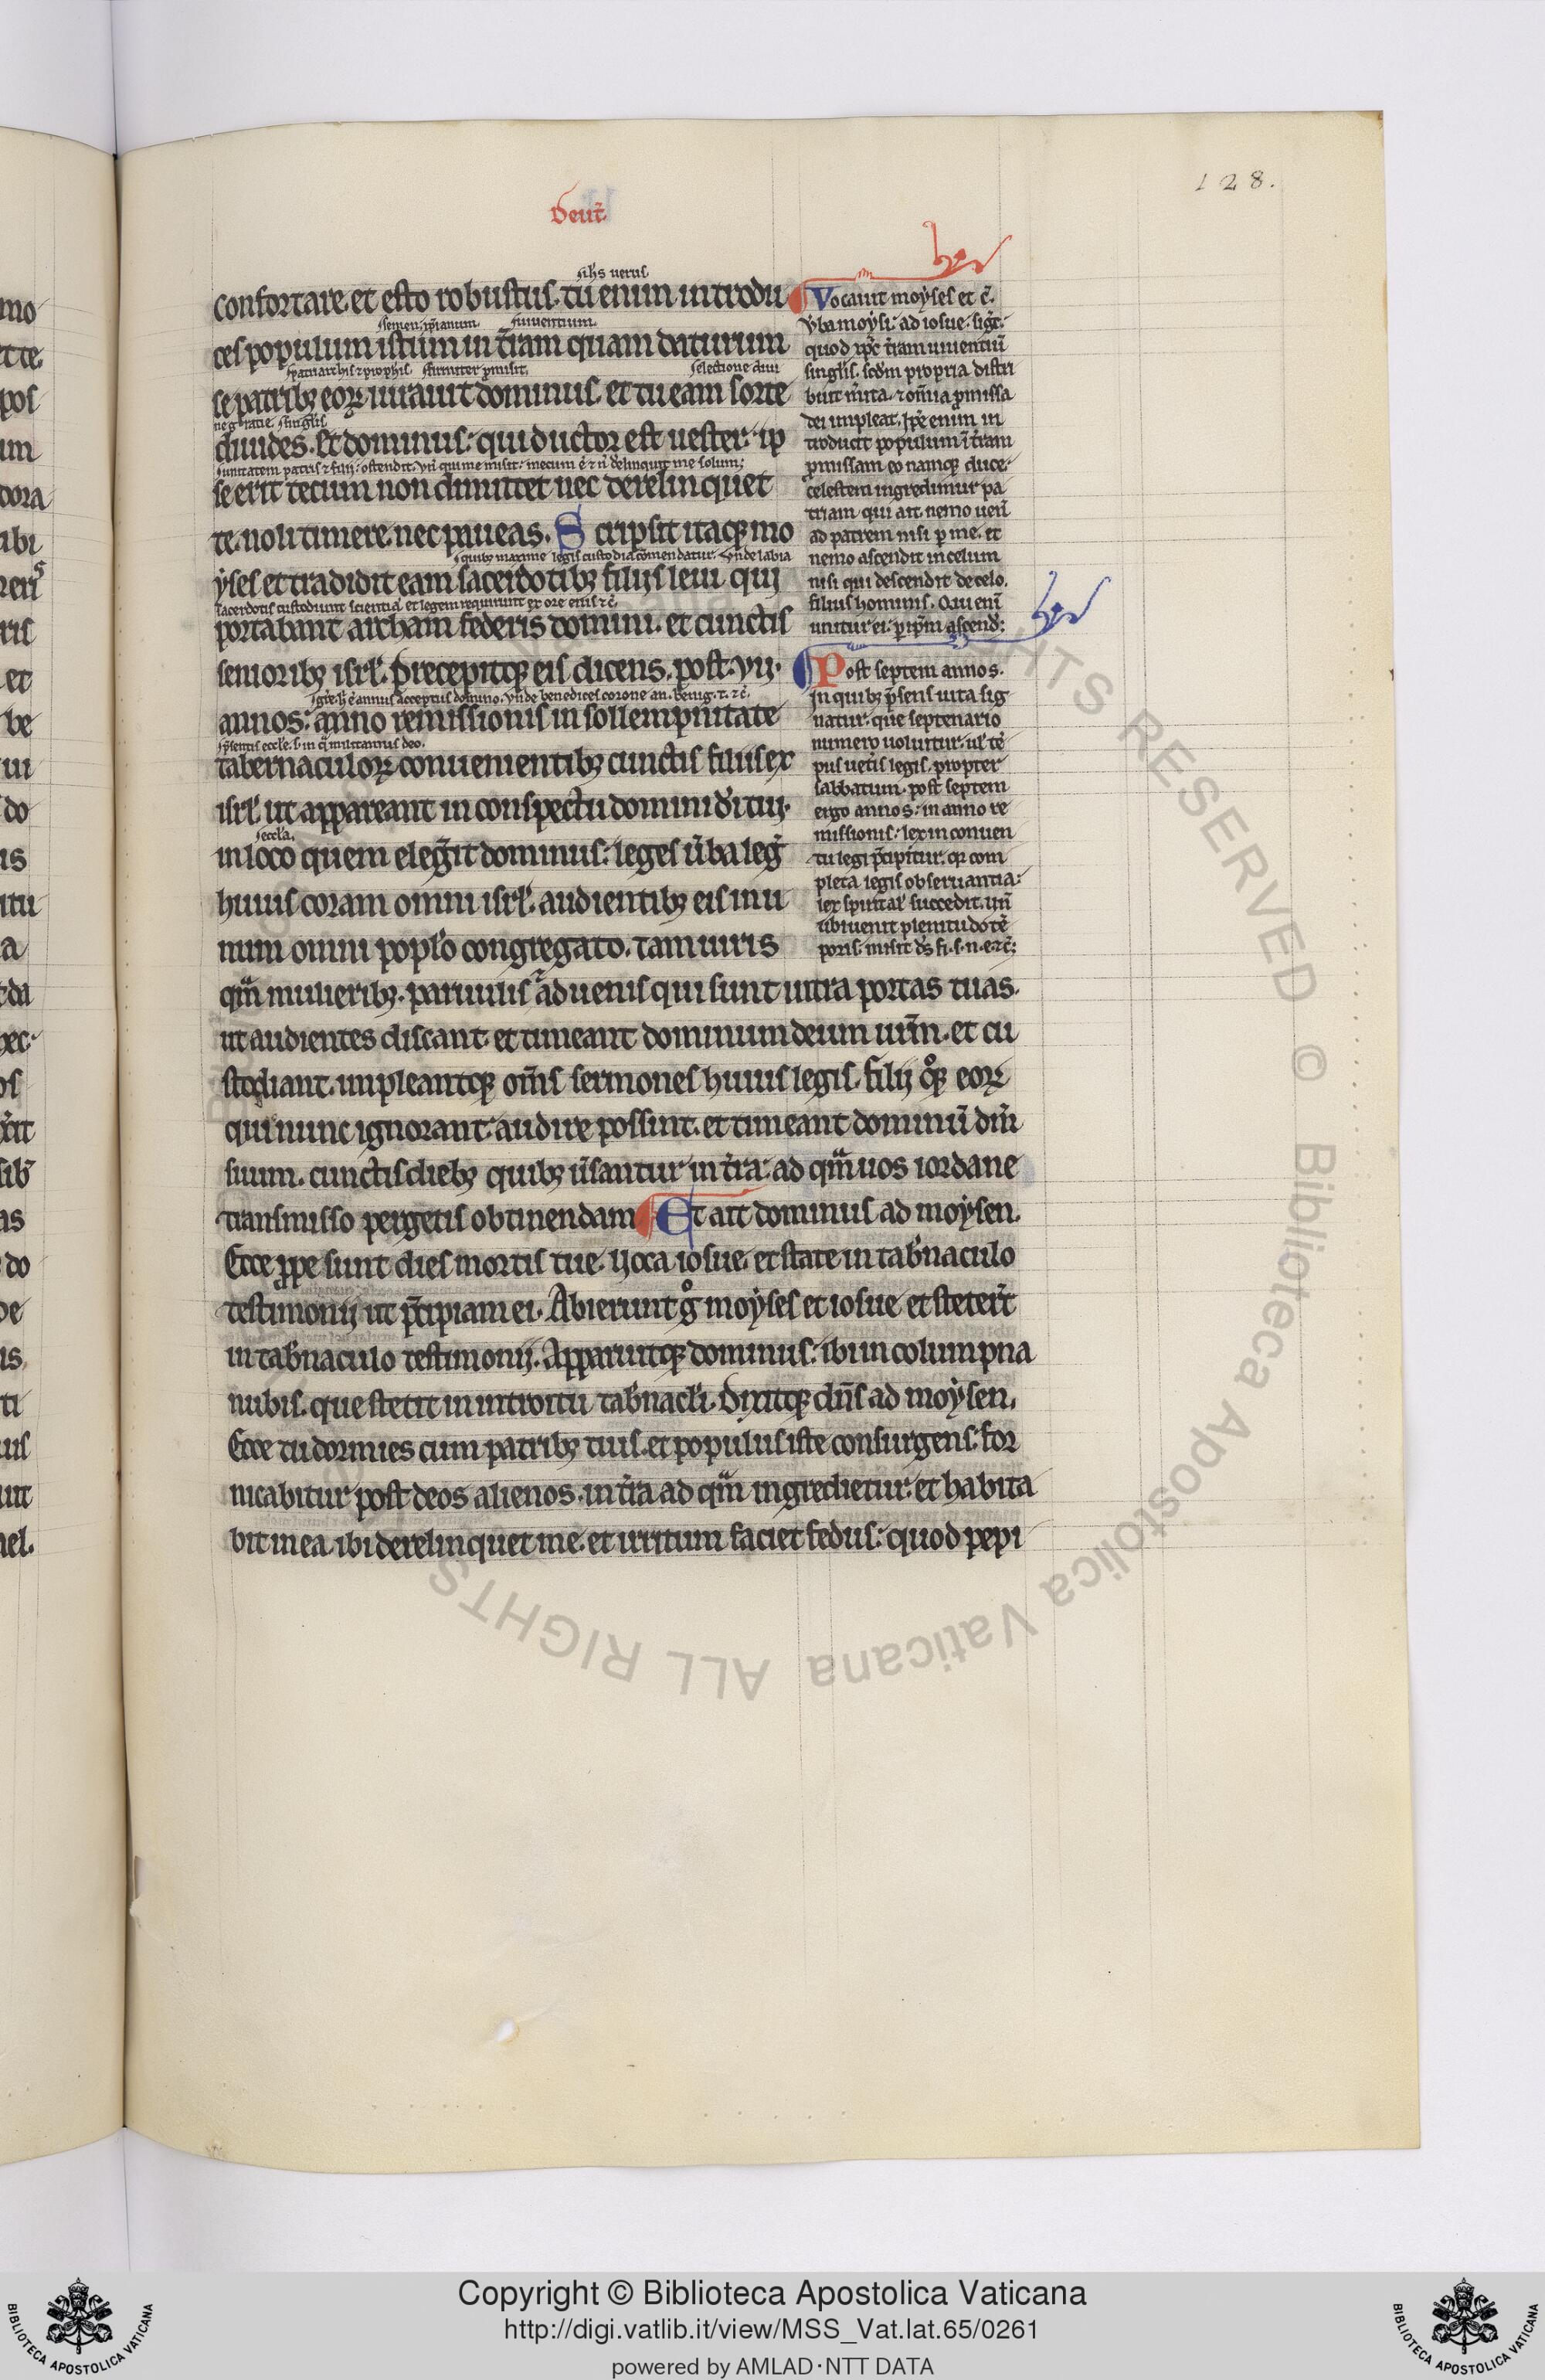 128.
Deut̄.
s. ih̄s uerus
confortare. et esto robustus. tu enim introdu
s. semen xp̄ianum s. uiuentium.
ces populum istum in t̄ram quam daturum
s. patriarchis ⁊ proph̄is s. firmiter p̄misit. s. electione diui
se patribꝫ eoꝝ iurauit dominus. et tu eam sorte
ne gratie. s. singl̄is
diuides. Et dominus: qui ductor est uester: ip
s. unitatem patris ⁊ filij: ostendit. vn̄ qui me misit: mecum ē ⁊ n̄ delinquit me solum;
se erit tecum non dimittet nec derelinquet
te. noli timere. nec paueas. Scripsit itaqꝫ mo
s. quibꝫ maxime legis custodia cōmendatur. Vnde labia
yses et tradidit eam sacerdotibꝫ filijs leui qui
sacerdotis custodiunt scientiā. et legem requirunt ex ore eius ⁊c̄.
portabant archam federis domini. et cunctis
senioribꝫ isrl̄. Precepitqꝫ eis dicens. post. vij.
s. gr̄e. h̄ ē annus acceptus domino. vn̄de benedices corone an. benig. t. ⁊c̄.
annos: anno remissionis in sollempnitate
s. p̄sentis eccl̄e. s. in q̄ militamus deo.
tabernaculoꝝ. conuenientibꝫ cunctis filiis ex
isrl̄. ut appareant in conspectu domini dī tui.
s. eccl̄a.
in loco quem elegīt dominus: leges ūba leḡ
huius coram omni isrl̄. audientibꝫ eis in u
num omni popl̄o congregato. tam uiris
qm̄ mulieribꝫ. paruulis aduenis qui sunt intra portas tuas.
ut audientes discant. et timeant dominum deum urm̄. et cu
stodiant. impleantqꝫ om̄s sermones huius legis. filij qͦqꝫ eoꝝ
qui nunc ignorant: audire possint. et timeant dominū dm̄
suum. cunctis diebꝫ quibꝫ ūsantur in t̄ra: ad qm̄ uos iordane
transmisso pergetis obtinendam Et ait dominus ad moysen.
Ecce ꝓpe sunt dies mortis tue. Uoca iosue. et state in tab̄naculo
testimonij ut p̄cipiam ei. Abierunt gͦ moyses et iosue et steter̄t
in tab̄naculo testimonij. Apparuitqꝫ dominus: ibi in columpna
nubis. que stetit in introitu tab̄nacl̄i. Dixitqꝫ dn̄s ad moysen.
Ecce tu dormies cum patribꝫ tuis. et populus iste consurgens. for
nicabitur post deos alienos. in t̄ra ad qm̄ ingredietur. et habita
bit in ea. ibi derelinquet me. et irritum faciet fedus: quod pepi
Vocauit moyses et c̄.
Ūba moysi: ad iosue. sigt̄:
quod xp̄c t̄ram uiuentiū
singl̄is. scdm̄ propria distri
buit m̄ita. ⁊ om̄ia p̄missa
dei impleat. Ip̄e enim in
troducit populum ī t̄ram
p̄missam. eo namqꝫ duce:
celestem ingredimur pa
triam. qui ait. nemo uenī
ad patrem nisi ꝑ me. et
nemo ascendit in celum
nisi qui descendit de celo.
filius hominis. Qui enī
unitur ei: ꝑ ip̄m ascend̄:
Post septem annos.
In quibꝫ p̄sens uita sig
natur. que septenario
numero uoluitur. ul̄ tē
pus uetīs legis. propter
sabbatum. post septem
ergo annos: in anno re
missionis: lex in conuen
tu legi p̄cipitur. qꝛ com
pleta legis obseruantia:
lex spirital̄ succedit. vn̄
ubi uenit plenitudo tē
poris: misit ds̄ fi. s. n. e ⁊c̄:
Copyright © Biblioteca Apostolica Vaticana
http://digi.vatlib.it/view/MSS_Vat.lat.65/0261
powered by AMLAD·NTT DATA
BIBLIOTECA APOSTOLICA VATICANA
BIBLIOTECA APOSTOLICA VATICANA
Biblioteca Apostolica Vaticana ALL RIGHTS RESERVED ©